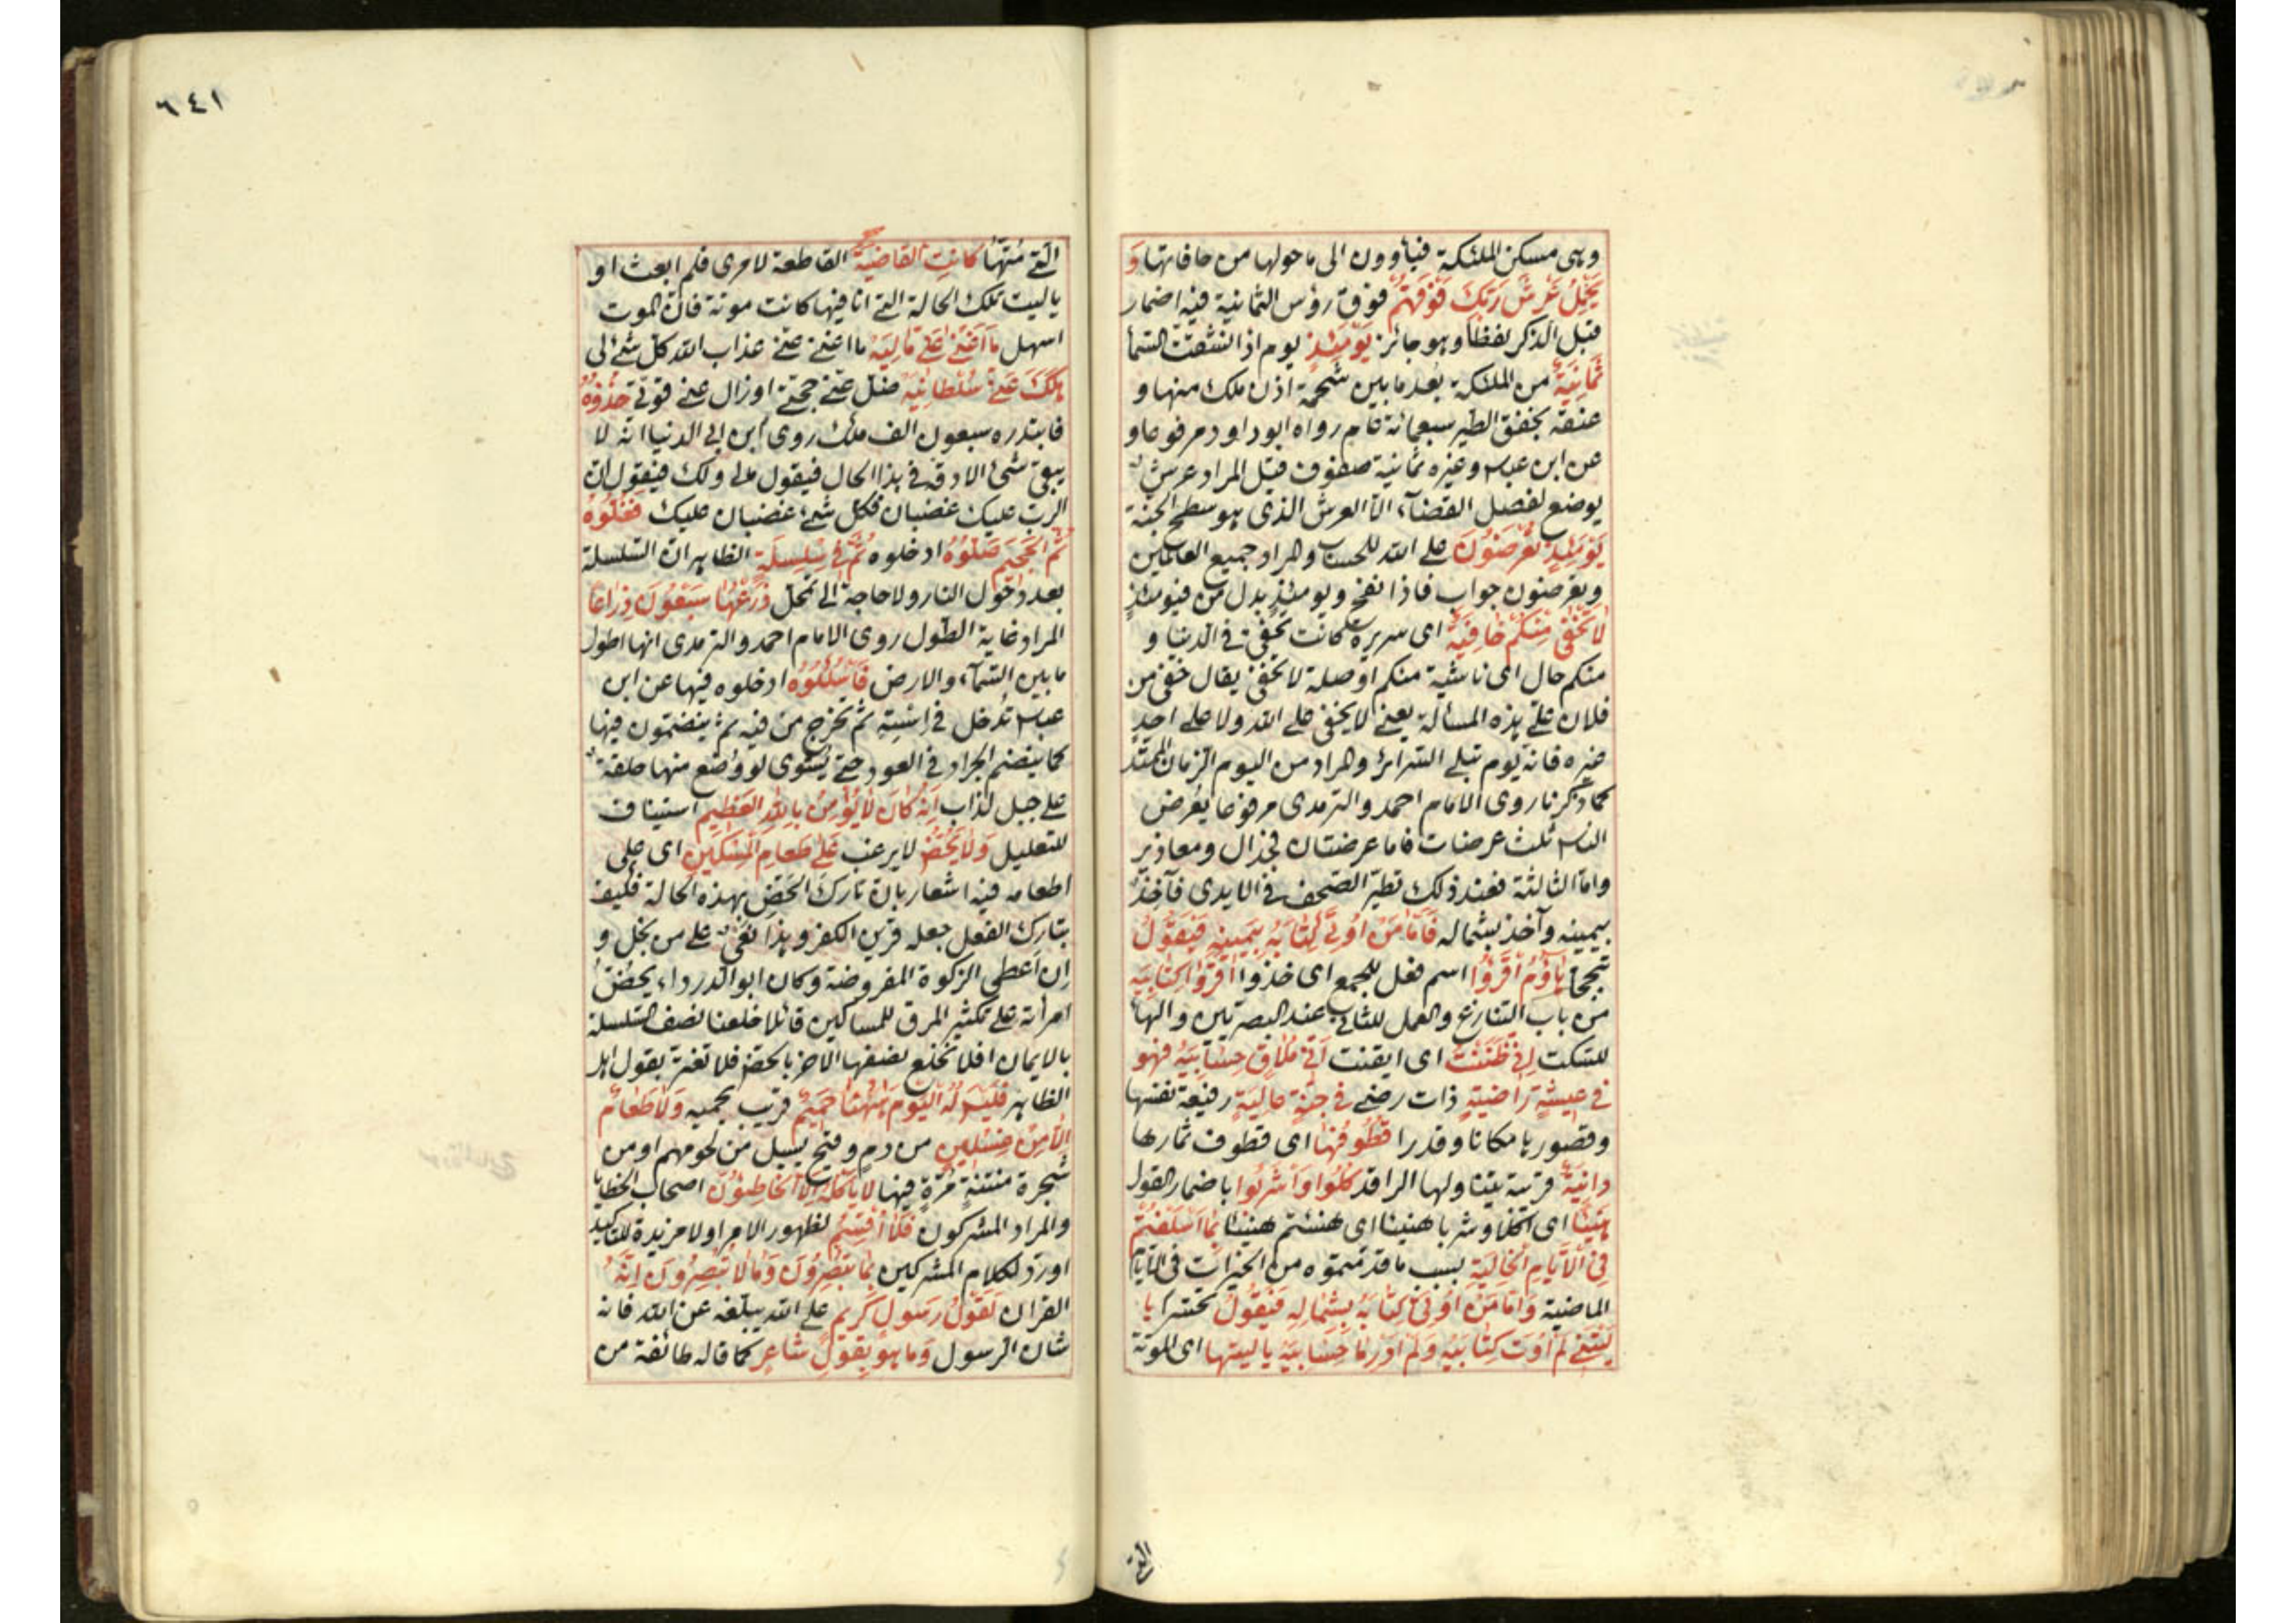 وهى مسكن الملئكة فيأوون الى ما حولها من حافاتها وَ
يَحْمِلُ عَرْشَ رَبِّكَ فَوْقَهُمْ فوق رؤس الثمانية فيه اضمار
قبل الذكر لفظا وهو جائز يَوْمَئِذٍ يوم اذ انشقت السّمآ
ثَمَانِيَةٌ من الملئكة بعد ما بين شحمة اذن ملك منها و
عنقه بخفق الطير سبعمائة عام رواه ابو داود مرفوعا و
عن ابن عباس وغيره ثمانية صفوف قيل المراد عرش
يوضع لفصل القضآء الا العرش الذى هو سطح الجنة
يَوْمَئِذٍ تُعْرَضُونَ على الله للحساب والمراد جميع العالمين
وتعرضون جواب فاذا نفخ ويومئذٍ بدل من فيومئذٍ
لَا تَخْفَى مِنْكُمْ خَافِيَةٌ اى سريرة كانت تخفى فى الدنيا و
منكم حال اى ناشية منكم او صلة لا تخفى يقال خفى من
فلان علىّ هذه المسألة يعنى لا يخفى على الله ولا على احدٍ
غيره فانه يوم تبلى السّرائر والمراد من اليوم الزمان الممتد
كما ذكرنا روى الامام احمد والترمدى مرفوعا يعرض
الناس ثلث عرضات فاما عرضتان فجدال ومعاذير
واما الثالثة فعند ذلك تطير الصّحف فى الايدى فآخذ
بيمينه وآخذ بشماله فَأَمَّا مَنْ أُوتِيَ كِتَابَهُ بِيَمِينِهِ فَيَقُولُ
تبجحا هَاؤُمُ اقْرَؤُا اسم فعل للجمع اى خذوا اقْرَؤُا كِتَابِيَهْ
من باب التنازع والعمل للثانى عند البصريين والهآ
للسّكت إِنِّي ظَنَنْتُ اى ايقنت أَنِّي مُلَاقٍ حِسَابِيَهْ فَهُوَ
فِي عِيشَةٍ رَاضِيَةٍ ذات رضى فِي جَنَّةٍ عَالِيَةٍ رفيعة نفسها
وقصورها مكانا وقدرا قُطُوفُهَا اى قطوف ثمارها
دَانِيَةٌ قريبة يتناولها الراقد كُلُوا وَاشْرَبُوا باضمار القول
هَنِيئًا اى اكلا وشربا هنيئا اى هنئتم هنيئا بِمَا أَسْلَفْتُمْ
فِي الْأَيَّامِ الْخَالِيَةِ بسبب ما قدّمتموه من الخيرات فى الايام
الماضية وَأَمَّا مَنْ أُوتِيَ كِتَابَهُ بِشِمَالِهِ فَيَقُولُ تحسّرا يَا
لَيْتَنِي لَمْ أُوتَ كِتَابِيَهْ وَلَمْ أَدْرِ مَا حِسَابِيَهْ يَا لَيْتَهَا اى الموتة
التى
٦٤١
التى مُتُّهَا كَانَتِ الْقَاضِيَةَ القاطعة لامرى فلم ابعث او
يا ليت تلك الحالة التى انا فيها كانت موتة فان الموت
اسهل مَا أَغْنَى عَنِّي مَالِيَهْ ما اغنى عنى عذاب الله كل شئ لى
هَلَكَ عَنِّي سُلْطَانِيَهْ ضل عنى حجتى او زال عنى قوتى خُذُوهُ
فابتدره سبعون الف ملك روى ابن ابى الدنيا انه لا
يبقى شئ الا دقه فى هذا الحال فيقول مالى ولك فيقول ان
الرب عليك غضبان فكل شئ غضبان عليك فَغُلُّوهُ
ثُمَّ الْجَحِيمَ صَلُّوهُ ادخلوه ثُمَّ فِي سِلْسِلَةٍ الظاهر ان السّلسلة
بعد دخول النار ولا حاجة الى تمحل ذَرْعُهَا سَبْعُونَ ذِرَاعًا
المراد غاية الطول روى الامام احمد والترمدى انها اطول
ما بين السّمآء والارض فَاسْلُكُوهُ ادخلوه فيها عن ابن
عباس تدخل فى استه ثم تخرج من فيه ثم ينضمون فيها
كما ينضم الجراد فى العود حتى يشوى لو وضع منها حلقة
على جبل لذاب إِنَّهُ كَانَ لَا يُؤْمِنُ بِاللَّهِ الْعَظِيمِ استيناف
للتعليل وَلَا يَحُضُّ لا يرغب عَلَى طَعَامِ الْمِسْكِينِ اى على
اطعامه فيه اشعار بان تارك الحَضّ بهذه الحالة فكيف
بتارك الفعل جعله قرين الكفر وهذا على من بخل و
ان اعطى الزكوة المفروضة وكان ابو الدرداء يحضّ
امرأته على تكثير المرق للمساكين قائلا خلعنا نصف السّلسلة
بالايمان افلا نخلع نصفها الاخر بالحض فلا تغتر بقول اهل
الظاهر فَلَيْسَ لَهُ الْيَوْمَ هَهُنَا حَمِيمٌ قريب يحميه وَلَا طَعَامٌ
إِلَّا مِنْ غِسْلِينٍ من دم وقيح يسيل من لحومهم او من
شجرة منتنةٍ مرّةٍ فيها لَا يَأْكُلُهُ إِلَّا الْخَاطِئُونَ اصحاب الخطايا
والمراد المشركون فَلَا أُقْسِمُ لظهور الامر او لا مزيدة للتاكيد
او ردّ لكلام المشركين بِمَا تُبْصِرُونَ وَمَا لَا تُبْصِرُونَ إِنَّهُ
القران لَقَوْلُ رَسُولٍ كَرِيمٍ على الله يبلّغه عن الله فانه
شان الرسول وَمَا هُوَ بِقَوْلِ شَاعِرٍ كما قاله طائفة من